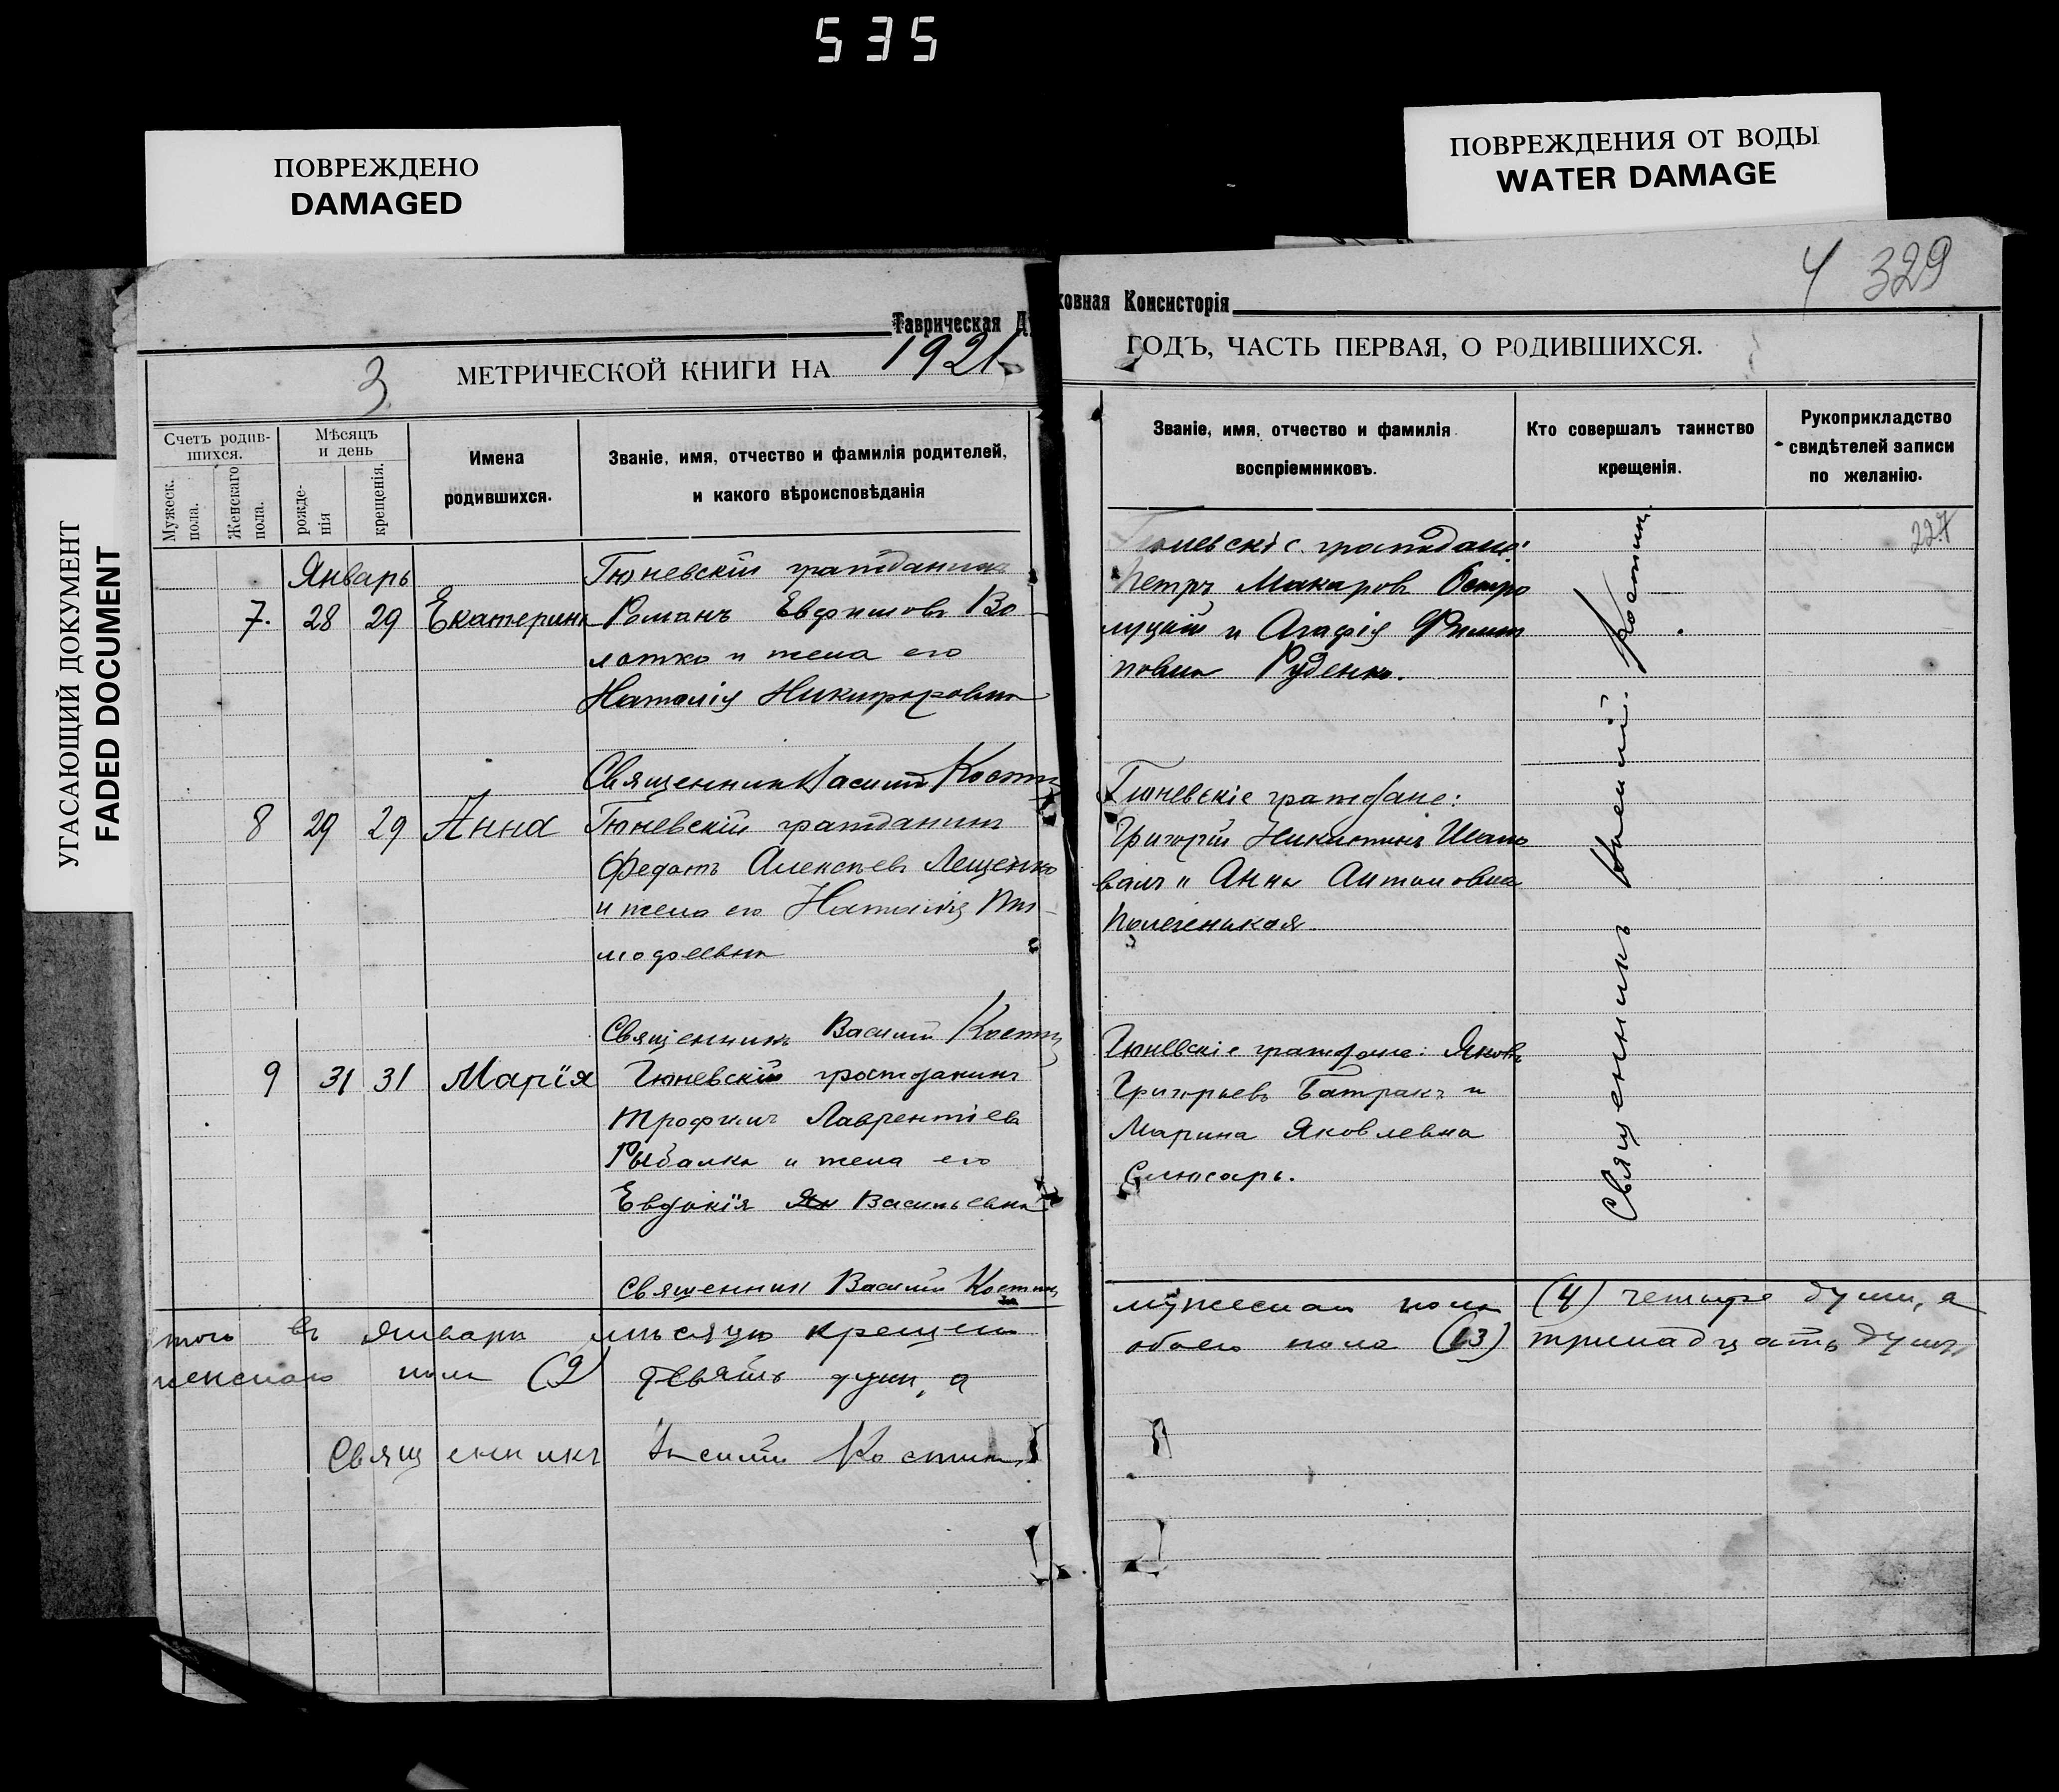 535
ПОВРЕЖДЕНО
DAMAGED
ПОВРЕЖДЕНИЯ ОТ ВОДЫ
WATER DAMAGE
УГАСАЮЩИЙ ДОКУМЕНТ
FADED DOCUMENT
4 329
Таврическая Ду
ховная Консисторія
3
МЕТРИЧЕСКОЙ КНИГИ НА 1921
ГОДЪ, ЧАСТЬ ПЕРВАЯ, О РОДИВШИХСЯ.
Счетъ родив-
шихся.
Мужеск.
пола.
Женскаго
пола.
Мѣсяцъ
и день
рожде-
нія
крещенія.
Имена
родившихся.
Званіе, имя, отчество и фамилія родителей,
и какого вѣроисповѣданія
Званіе, имя, отчество и фамилія
воспріемниковъ.
Кто совершалъ таинство
крещенія.
Рукоприкладство
свидѣтелей записи
по желанію.
227
Январь
7. 28 29 Екатерина
Гюневскій гражданинъ
Романъ Евфимовъ Во
лотко и жена его
Наталія Никифоровна
Священникъ Василій Костин
граждане:
Петръ Макаровъ Остро
луцкій и Агафія Филип
повна Руденко.
8 29 29 Анна
Гюневскій гражданинъ
Федотъ Алексѣевъ Лещенко
и жена его Наталія Ти-
мофеевна
Священникъ Василій Костин
Гюневскіе граждане:
Григорій Никитинъ Шапо
валъ и Анна Антоновна
9 31 31 Марія
Гюневскій гражданинъ
Трофимъ Лаврентіевъ
Рыбалка и жена его
Евдокія Васильевна
Священник Василій Костин
Гюневскіе граждане: Яковъ
Григорьевъ Батракъ и
Марина Яковлевна
Слюсарь.
Священникъ Василій Костин
того въ Январѣ мѣсяцѣ крещено
мужескаго пола (4) четыре души, а
женскаго пола (9) девять душъ, а
обоего пола (13) тринадцать душъ
Священникъ Василій Костин